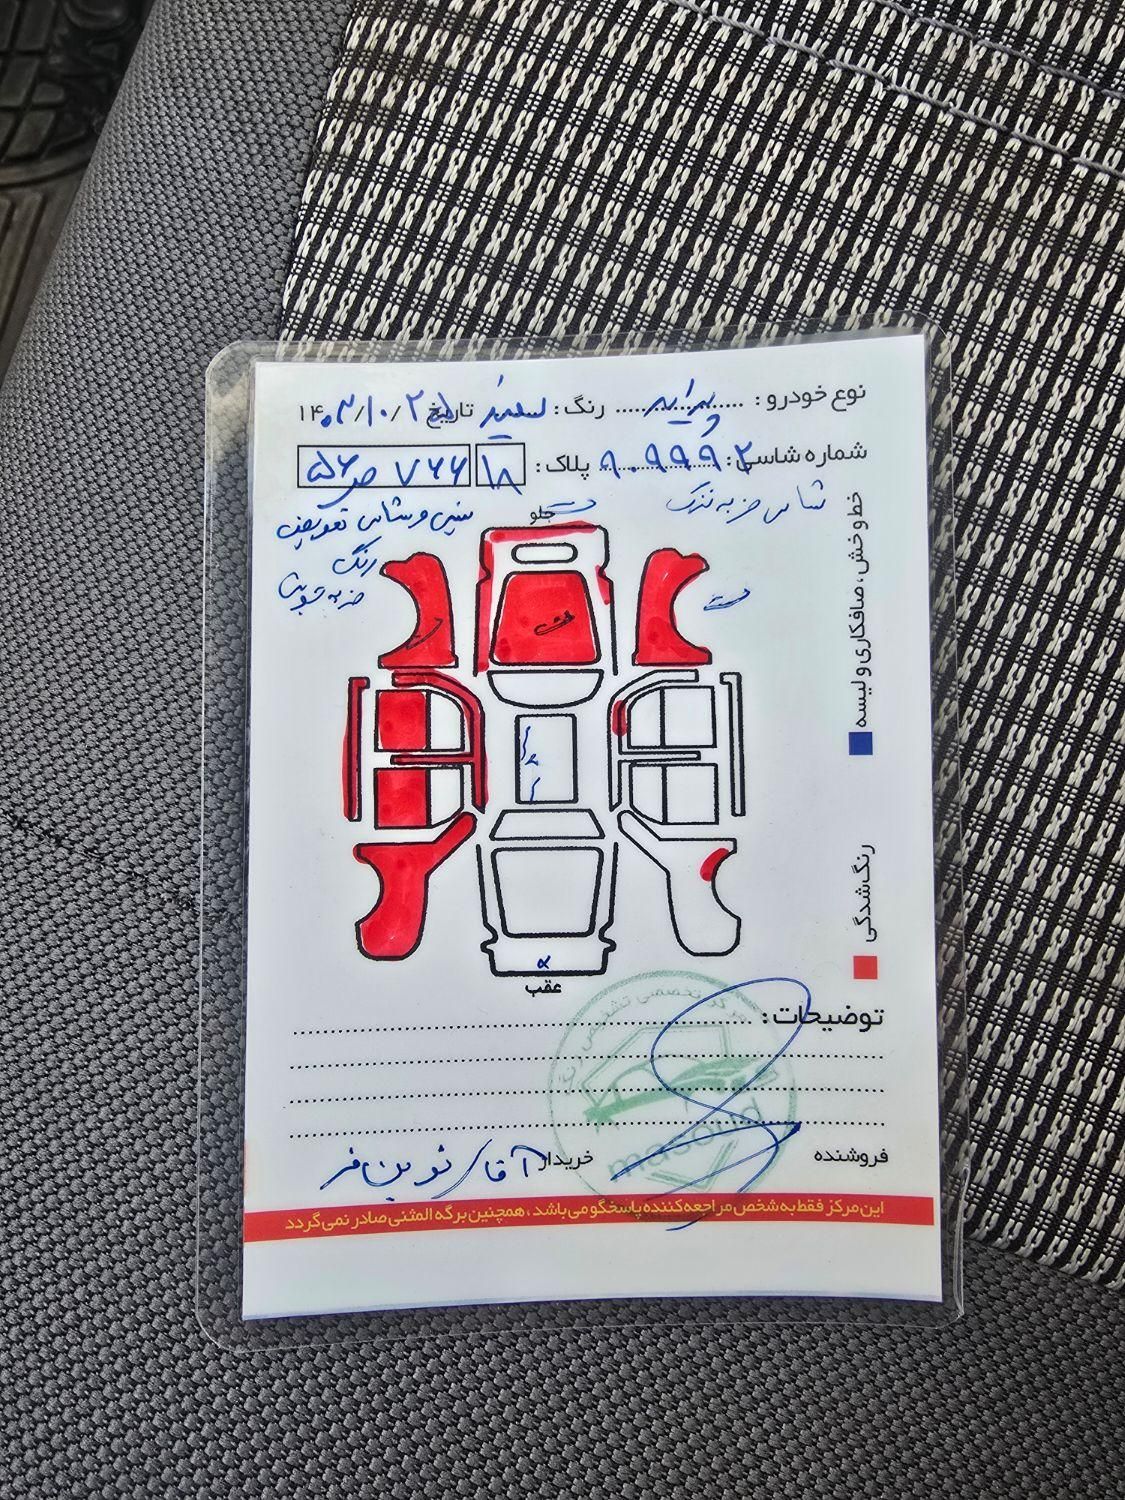 نوع خودرو : پراید رنگ : سفید تاریخ ۱۴۰۳/۱۰/۲۵
شماره شاسی : ۹۰۹۹۹۲ پلاک : ۱۸ ۷۶۶ ص ۵۶
شاسی ضربه نزدیک
جلو
سینی و شاسی تعویض
رنگ
ضربه شدید
خط و خش ، صافکاری و لیسه
رنگ‌شدگی
عقب
توضیحات :
مرکز تخصصی تشخیص رنگ
masoud
فروشنده خریدار آقای نوین‌فر
این مرکز فقط به شخص مراجعه‌کننده پاسخگو می‌باشد ، همچنین برگه المثنی صادر نمی‌گردد